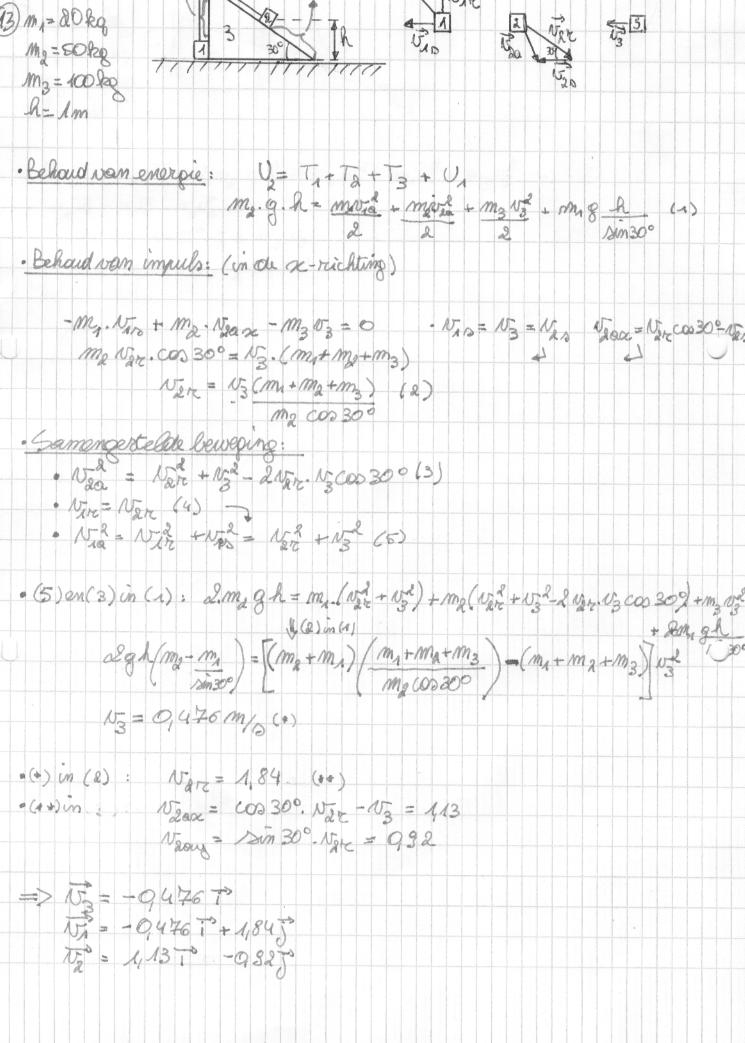 13 m₁ = 20 kg
m₂ = 50 kg
m₃ = 100 kg
h = 1m
1 2 3 30° h
1 v₁s v₁r
2 v₂r v₂a 30° v₂s
v₃ 3
• Behoud van energie: U₂ = T₁ + T₂ + T₃ + U₁
m₂·g·h = m₁v₁a²/2 + m₂v₂a²/2 + m₃v₃²/2 + m₁ g h/sin30° (1)
• Behoud van impuls: (in de x-richting)
-m₁·v₁s + m₂·v₂ax - m₃v₃ = 0 · v₁s = v₃ = v₂s v₂ax = v₂r cos30° - v₂s
m₂ v₂r · cos 30° = v₃·(m₁+m₂+m₃)
v₂r = v₃(m₁+m₂+m₃)/m₂ cos30° (2)
• Samengestelde beweging:
• v₂a² = v₂r² + v₃² - 2v₂r·v₃ cos30° (3)
• v₁r = v₂r (4)
• v₁a² = v₁r² + v₁s² = v₂r² + v₃² (5)
• (5) en (3) in (1): 2·m₂ g h = m₁·(v₂r² + v₃²) + m₂(v₂r² + v₃² - 2v₂r·v₃ cos 30°) + m₃v₃²
+ 2m₁ gh/sin30°
↓(2) in (1)
2gh(m₂ - m₁/sin30°) = [(m₂+m₁)(m₁+m₂+m₃/m₂cos30°) - (m₁+m₂+m₃)] v₃²
v₃ = 0,476 m/s (*)
• (*) in (2): v₂r = 1,84 (**)
• (**) in : v₂ax = cos30°·v₂r - v₃ = 1,13
v₂ay = sin30°·v₂r = 0,92
=> v₃ = -0,476 i
v₁ = -0,476 i + 1,84 j
v₂ = 1,13 i - 0,92 j